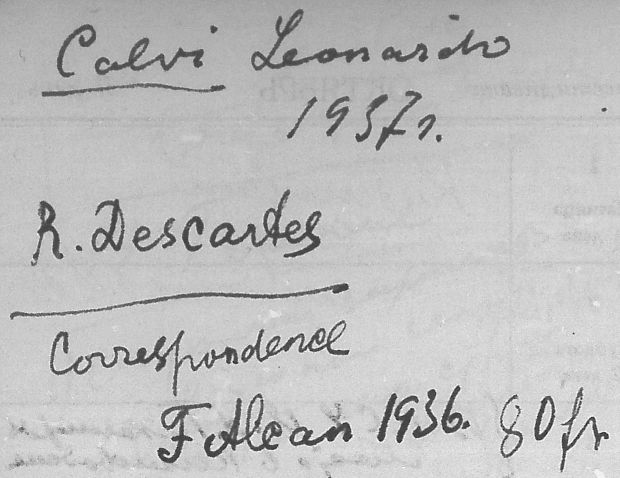 Calvi Leonardo
1937г.
R. Descartes
Correspondence
F Alcan 1936. 80 fr